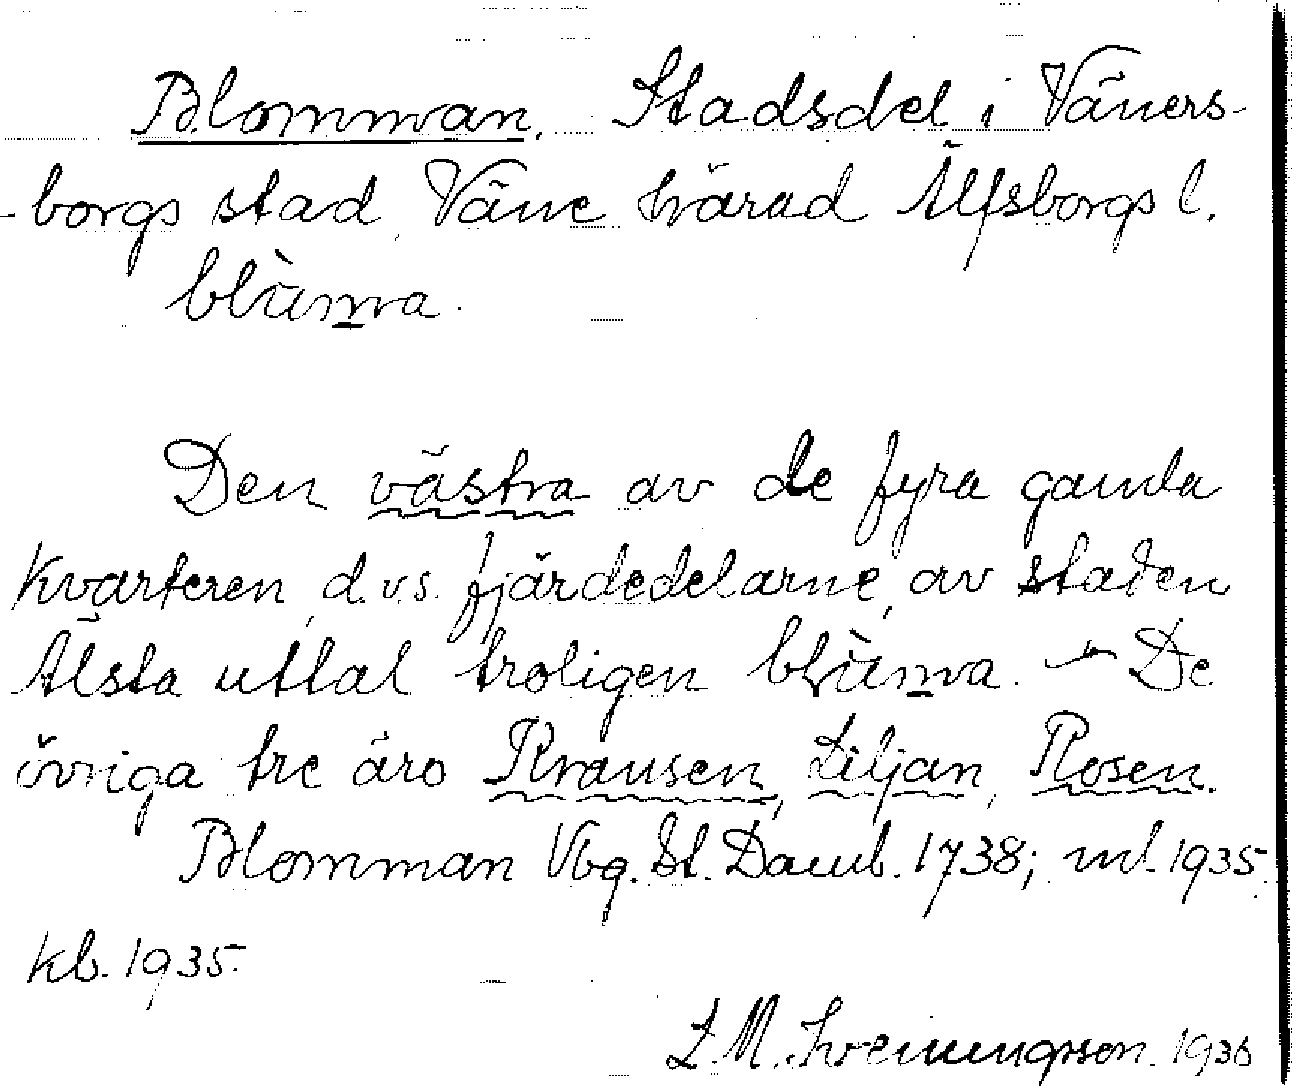 Blomman. Stadsdel i Väners-
borgs stad, Väne härad Älfsborgs l.
Den västra av de fyra gamla
kvarteren, d.v.s. fjärdedelarne, av staden
Älsta uttal troligen — De
övriga tre äro Krausen, Liljan, Rosen.
Blomman Vbg. St. Domb. 1738; ml. 1935
kb. 1935.
1936